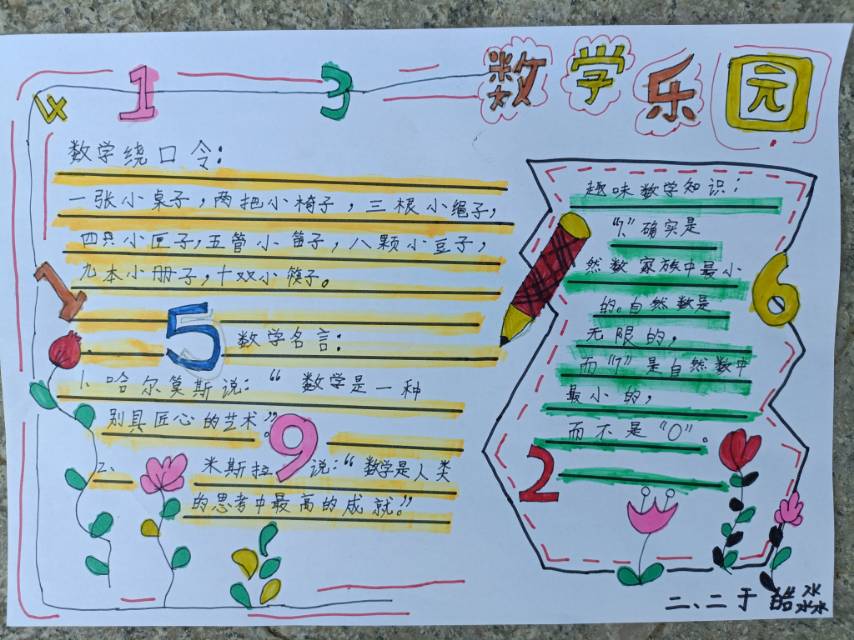 数学乐园
4
1
3
数学绕口令：
一张小桌子，两把小椅子，三根小绳子，
四只小匣子，五管小笛子，八颗小豆子，
九本小册子，十双小筷子。
1
5
数学名言：
1、哈尔莫斯说：“数学是一种
别具匠心的艺术”。
9
二、米斯拉说：“数学是人类
的思考中最高的成就。”
趣味数学知识：
“1”确实是
然数家族中最小
的。自然数是
无限的，
而“1”是自然数中
最小的，
而不是“0”。
6
2
二、二于